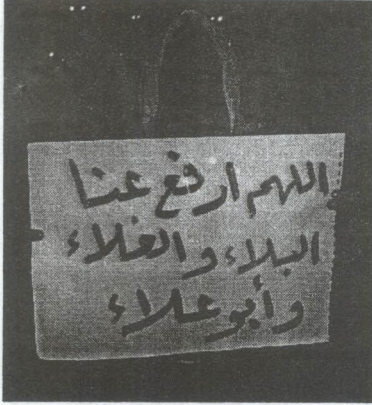 اللهم ارفع عنا
البلاء والغلاء
وأبو علاء